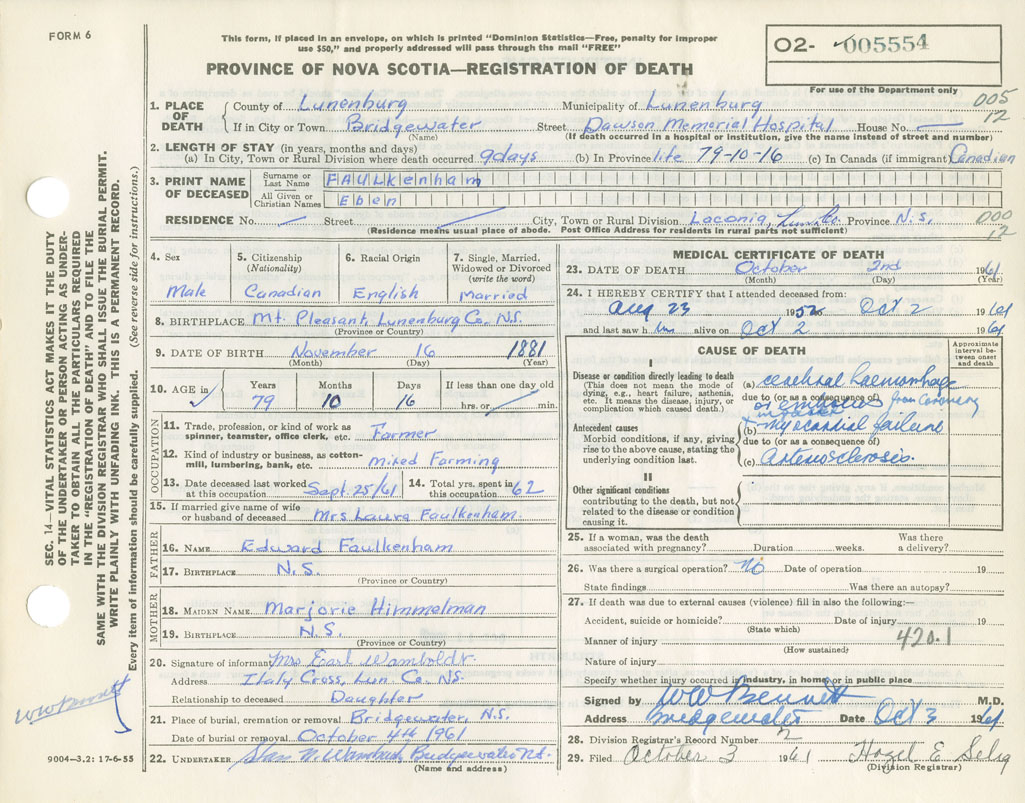 FORM 6
This form, if placed in an envelope, on which is printed "Dominion Statistics—Free, penalty for improper
use $50," and properly addressed will pass through the mail "FREE"
PROVINCE OF NOVA SCOTIA—REGISTRATION OF DEATH
O2- 005554
For use of the Department only
005
12
1. PLACE OF DEATH County of Lunenburg Municipality of Lunenburg
If in City or Town Bridgewater Street Dawson Memorial Hospital House No. —
(Name) (If death occurred in a hospital or institution, give the name instead of street and number)
2. LENGTH OF STAY (in years, months and days)
(a) In City, Town or Rural Division where death occurred 9days (b) In Province life 79-10-16 (c) In Canada (if immigrant) Canadian
3. PRINT NAME OF DECEASED
Surname or Last Name FAULKenham
All Given or Christian Names Eben
RESIDENCE No. Street City, Town or Rural Division Laconia, Lun. Co. Province N.S.
(Residence means usual place of abode. Post Office Address for residents in rural parts not sufficient)
000
12
4. Sex
Male
5. Citizenship
(Nationality)
Canadian
6. Racial Origin
English
7. Single, Married,
Widowed or Divorced
(write the word)
Married
8. BIRTHPLACE Mt. Pleasant, Lunenburg Co., N.S.
(Province or Country)
9. DATE OF BIRTH November 16 1881
(Month) (Day) (Year)
10. AGE in
Years Months Days If less than one day old
79 10 16 hrs. or min.
OCCUPATION
11. Trade, profession, or kind of work as
spinner, teamster, office clerk, etc. Farmer
12. Kind of industry or business, as cotton-
mill, lumbering, bank, etc. Mixed Farming
13. Date deceased last worked
at this occupation Sept. 25/61
14. Total yrs. spent in
this occupation 62
15. If married give name of wife
or husband of deceased Mrs Laura Faulkenham
FATHER
16. NAME Edward Faulkenham
17. BIRTHPLACE N.S.
(Province or Country)
MOTHER
18. MAIDEN NAME Marjorie Himmelman
19. BIRTHPLACE N.S.
(Province or Country)
20. Signature of informant Mrs Earl Wamboldt
Address Italy Cross, Lun. Co. NS.
Relationship to deceased Daughter
21. Place of burial, cremation or removal Bridgewater, N.S.
Date of burial or removal October 4th 1961
22. UNDERTAKER N. Bridgewater N.S.
(Name and address)
MEDICAL CERTIFICATE OF DEATH
23. DATE OF DEATH October 2nd 1961
(Month) (Day) (Year)
24. I HEREBY CERTIFY that I attended deceased from:
Aug 23 19 Oct 2 1961
and last saw him alive on Oct 2 1961
CAUSE OF DEATH
Approximate
interval be-
tween onset
and death
I
Disease or condition directly leading to death
(This does not mean the mode of
dying, e.g., heart failure, asthenia,
etc. It means the disease, injury, or
complication which caused death.)
(a) cerebral haemorrhage
due to (or as a consequence of)
or embolus from Coronary
infarct
Antecedent causes
Morbid conditions, if any, giving
rise to the above cause, stating the
underlying condition last.
(b) myocardial failure
due to (or as a consequence of)
(c) arteriosclerosis.
II
Other significant conditions
contributing to the death, but not
related to the disease or condition
causing it.
25. If a woman, was the death
associated with pregnancy? Duration weeks. Was there
a delivery?
26. Was there a surgical operation? No Date of operation 19
State findings Was there an autopsy?
27. If death was due to external causes (violence) fill in also the following:—
Accident, suicide or homicide? Date of injury 19
(State which)
Manner of injury 420.1
(How sustained)
Nature of injury
Specify whether injury occurred in industry, in home, or in public place
Signed by WW Bennett M.D.
Address Bridgewater Date Oct 3 1961
28. Division Registrar's Record Number 2
29. Filed October 3 1961 Hazel E Selig
(Division Registrar)
SEC. 14—VITAL STATISTICS ACT MAKES IT THE DUTY
OF THE UNDERTAKER OR PERSON ACTING AS UNDER-
TAKER TO OBTAIN ALL THE PARTICULARS REQUIRED
IN THE "REGISTRATION OF DEATH" AND TO FILE THE
SAME WITH THE DIVISION REGISTRAR WHO SHALL ISSUE THE BURIAL PERMIT.
WRITE PLAINLY WITH UNFADING INK. THIS IS A PERMANENT RECORD.
Every item of information should be carefully supplied. (See reverse side for instructions.)
WW Bennett
9004—3.2: 17-6-55